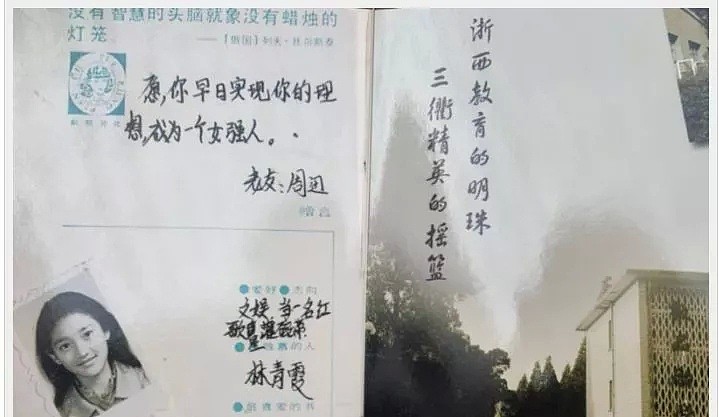 没有智慧的头脑就象没有蜡烛的
灯笼
——【俄国】列夫·托尔斯泰
愿,你早日实现你的理
想,成为一个女强人。
老友:周迅
赠言
●爱好●志向
文娱 当一名红
歌星
的人
林青霞
●最喜爱的书
浙西教育的明珠
三衢精英的摇篮